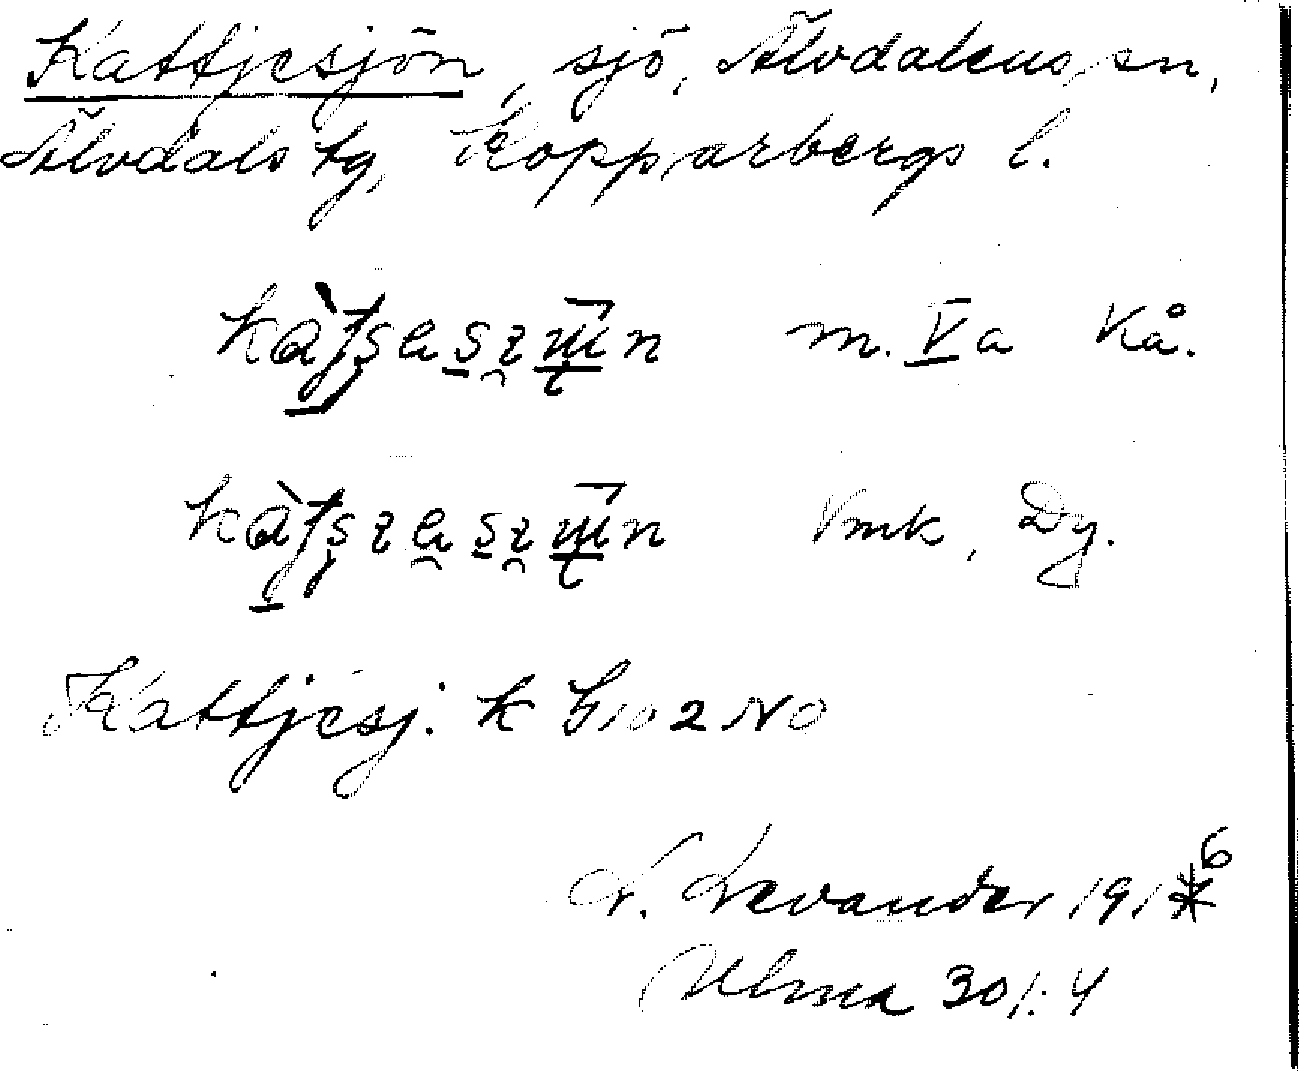 Kattjesjön, sjö, Älvdalens sn,
Älvdals tg, Kopparbergs l.
m. Va Kå.
Vmk, Dy.
Kattjesj. k G102NO
L. Levander 1916
Ulma 301:4